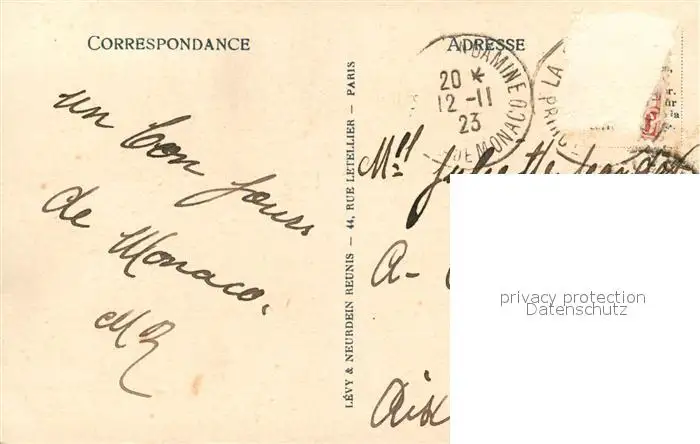 CORRESPONDANCE
ADRESSE
un bon jours
de Monaco,
MR
LÉVY & NEURDEIN REUNIS — 44, RUE LETELLIER — PARIS
20 *
12 -11
23
DE MONACO
LA
Mlle Juliette
A-
Aix
privacy protection
Datenschutz